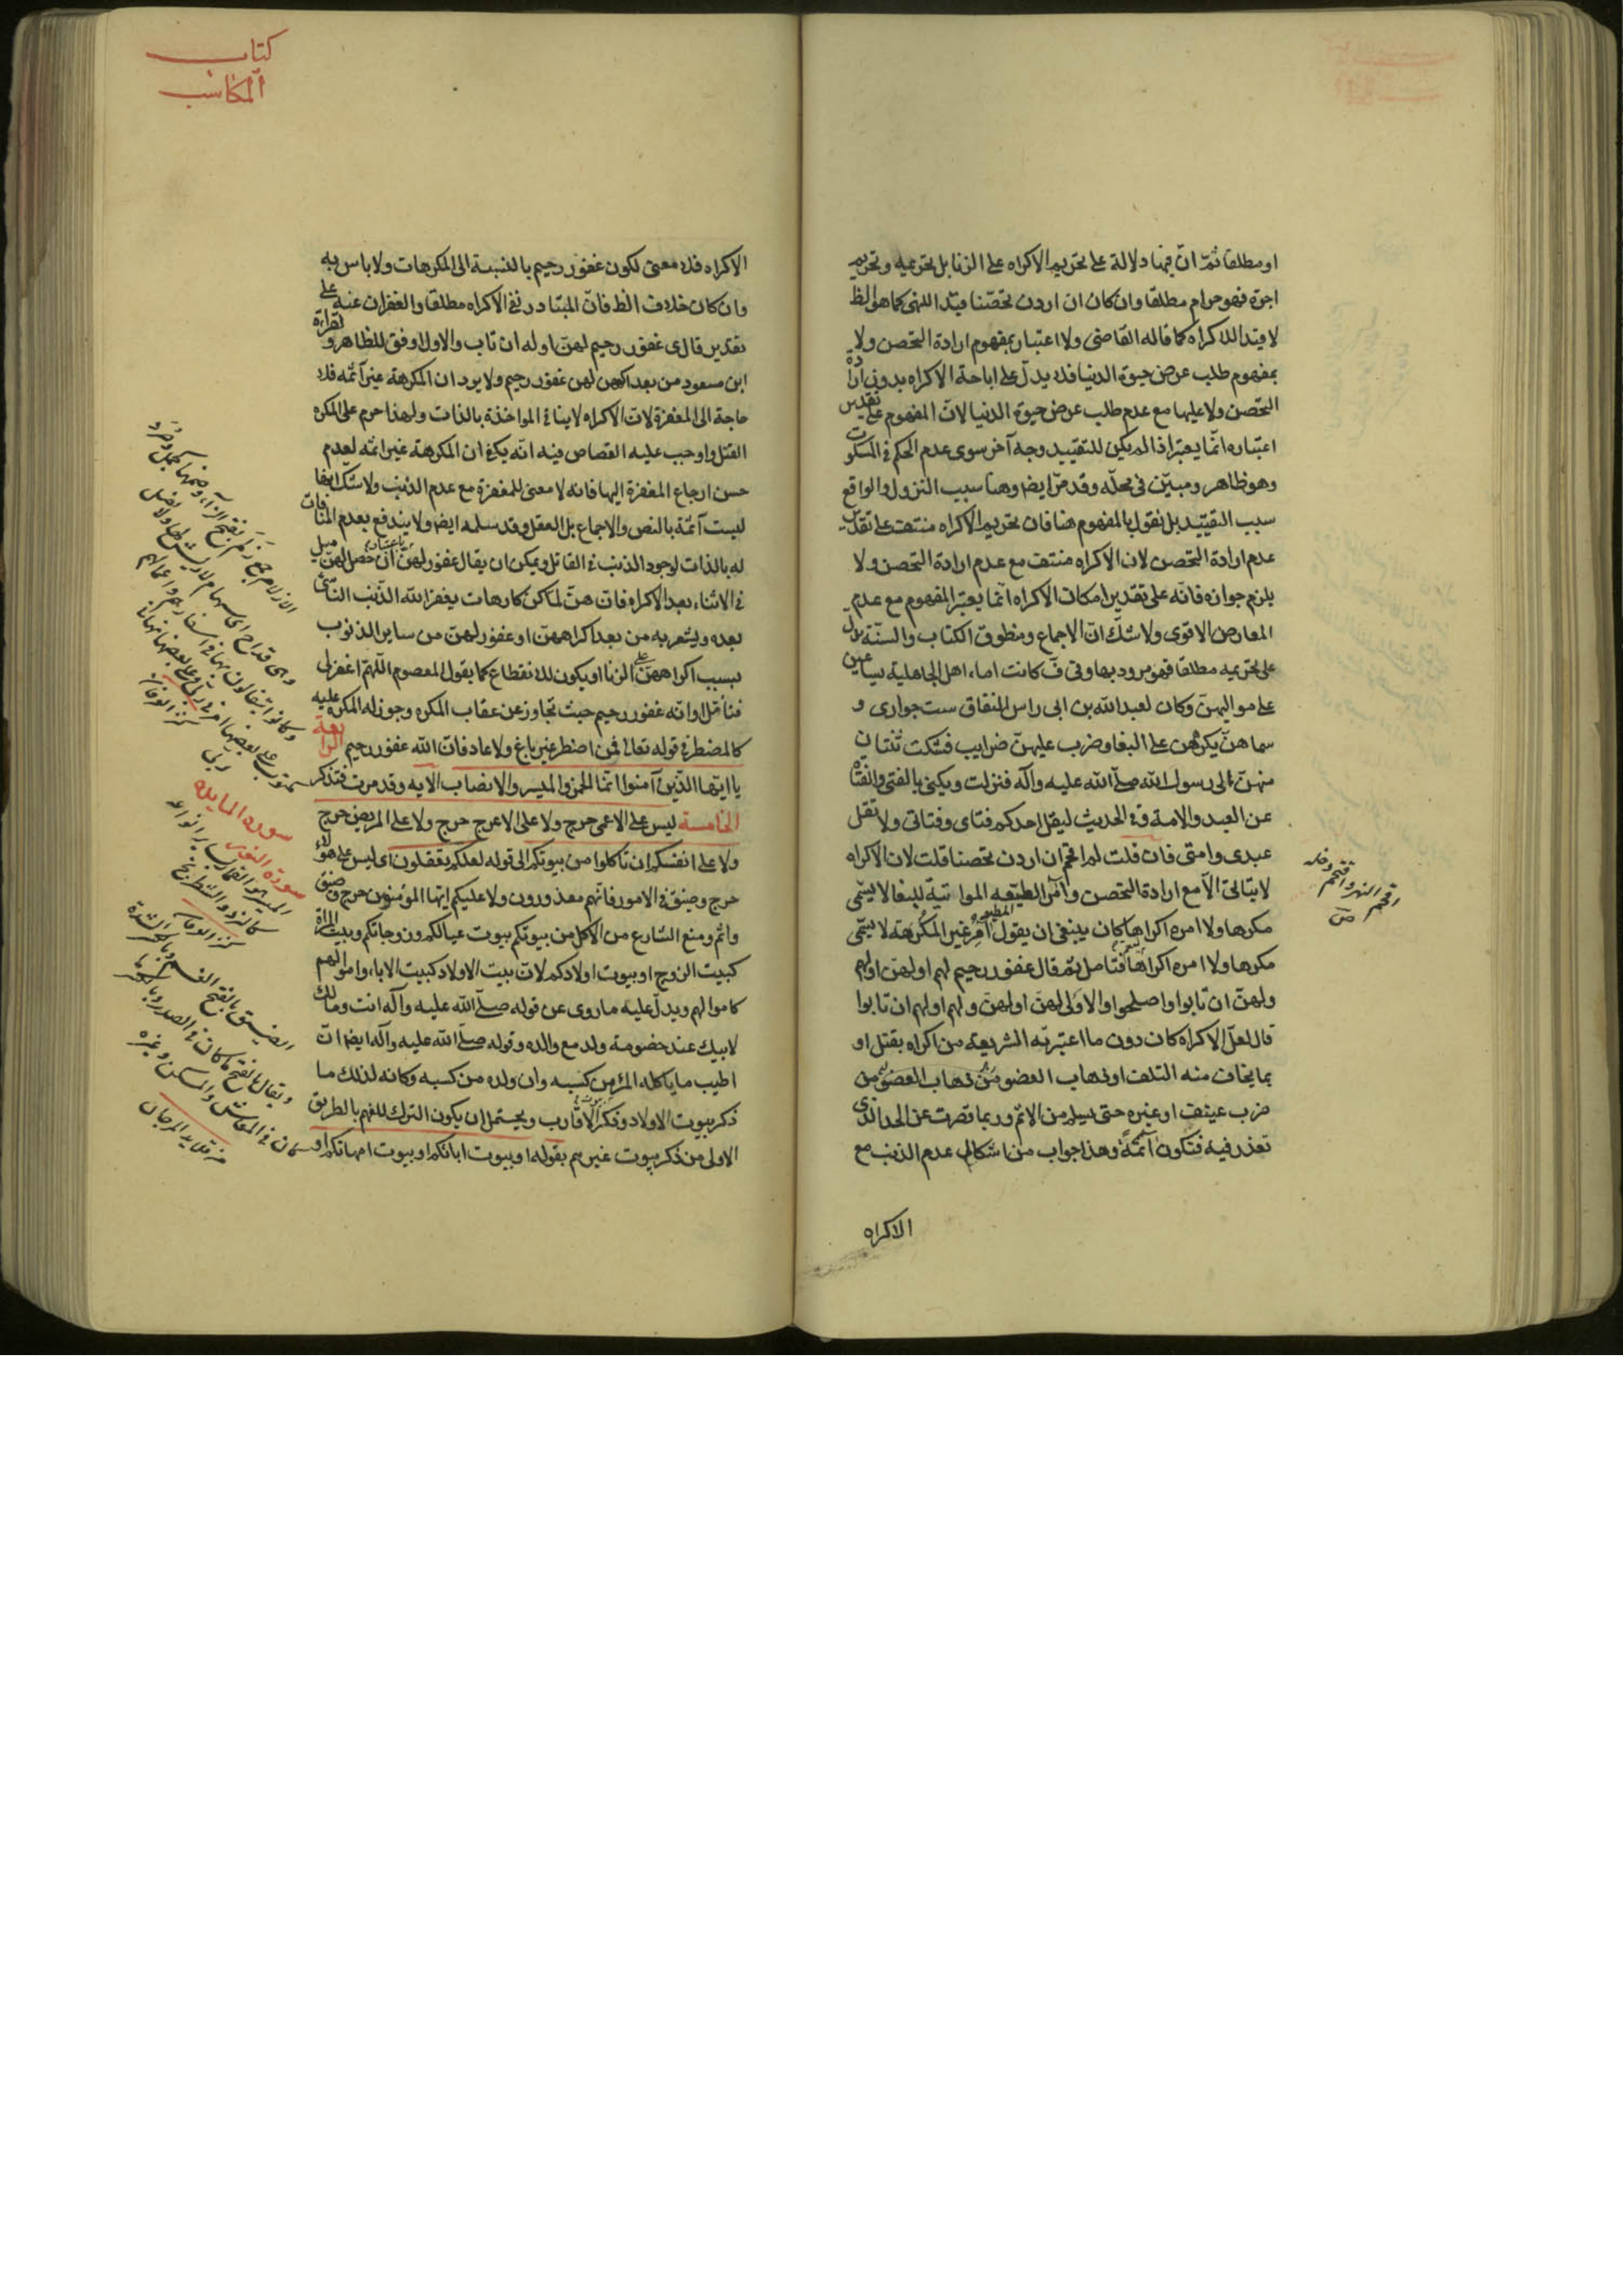 او مطلقا ثمّ انّ فيها دلالة على تحريم الاكراه على الزنا بل تحريمه وتحريم
اجرة فهو حرام مطلقا وان كان ان اردن تحصّنا قيّد النهى كما هو الظ
لا قيد الاكراه كما قاله القاضى ولا اعتبار بمفهوم ارادة التحصن ولا
بمفهوم طلب عرض حيوة الدنيا فلا يدلّ على اباحة الاكراه بدون ارادة
التحصن ولا عليها مع عدم طلب عرض حيوة الدنيا لانّ المفهوم على تقدير
اعتباره انّما يعتبر اذا لم يكن للتقييد وجه آخر سوى عدم الحكم فى المسكوت
وهو ظاهر ومبيّن فى محلّه وقد مرّ ايضا وهنا سبب النزول والواقع
سبب التقييد بل نقول بالمفهوم هنا فان تحريم الاكراه منتف على تقدير
عدم ارادة التحصن لان الاكراه منتف مع عدم ارادة التحصن ولا
يلزم جوازه فانّه على تقدير امكان الاكراه انّما يعتبر المفهوم مع عدم
المعارض الاقوى ولا شكّ انّ الاجماع ومنطوق الكتاب والسنّة يدل
على تحريمه مطلقا فهو مردود بها وفى ف كانت اماء اهل الجاهلية يساعين
على مواليهنّ وكان لعبد الله بن ابى راس النفاق ست جوارى و
سماهنّ يكرههن على البغا وضرب عليهنّ ضرايب فشكت ثنتان
منهنّ الى رسول الله صلّى الله عليه وآله فنزلت ويكنى بالفتى والفتاة
عن العبد والامة وفى الحديث ليقل احدكم فتاى وفتاتى ولا تقل
عبدى وامتى فان قلت لم اقحم ان اردن تحصنا قلت لان الاكراه
لا يتاتى الّا مع ارادة التحصن وآمر الطيّعة المواتية للبغا لا يسمّى
مكرها ولا امره اكراها كان ينبغى ان يقول المطيعة و آمر غير المكرهة لا يسمّى
مكرها ولا امره اكراها فتامل ثم قال غفور رحيم لهم او لهنّ او لهم
ولهنّ ان تابوا واصلحوا والاولى لهنّ او لهنّ ولهم او لهم ان تابوا
قال لعلّ الاكراه كان دون ما اعتبرته الشريعة من اكراه بقتل او
بما يخاف منه التلف او ذهاب العضو من
ضرب عنيف او غيره حتى يسلم من الاثم وربما قصرت عن الحد الذى
تعذر فيه فتكون آثمة وهذا جواب من اشكال عدم الذنب مع
الاكراه
اقحم النهر واقتحم دخله
ص
كتاب
المكاسب
الاكراه فلا معنى لكون غفور رحيم بالنسبة الى المكرهات ولا باس به
وان كان خلاف الظ فانّ المتبادر نفى الاكراه مطلقا والغفران عنه على
تقدير قال ى غفور رحيم لهنّ او له ان تاب والاول اوفق للظاهر ولقراءة
ابن مسعود من بعد اكراههن لهن غفور رحيم ولا يرد ان المكرهة غير آثمه فلا
حاجة الى المغفرة لانّ الاكراه لا ينافى المواخذة بالذات ولهذا حرم على المكره
القتل واوجب عليه القصاص فيه انّه يكفى ان المكرهة غير اثمه لعدم
حسن ارجاع المغفرة اليها فانه لا معنى للمغفرة مع عدم الذنب ولا شك انها
ليست آثمة بالنص والاجماع بل العقل وقد سلمه ايضا ولا يندفع بعدم المنافات
له بالذات لوجود الذنب فى القاتل ويمكن ان يقال غفور لهنّ باعتبار ان حصل لهنّ ميل
فى الاثناء بعد الاكراه فانّ هنّ لما كنّ كارهات يغفر الله الذنب الناشى
بعده ويشعر به من بعد اكراههنّ او غفور لهنّ من ساير الذنوب
بسبب اكراههنّ على الزنا او يكون للانقطاع كما يقول المعصوم اللّهمّ اغفر لى
فتأمل او انّه غفور رحيم حيث تجاوز عن عقاب المكره وجوز له المكره عليه
كالمضطر فى قوله تعالى فمن اضطر غير باغ ولا عاد فانّ الله غفور رحيم الرابعة
يا ايّها الذين آمنوا انّما الخمر والميسر والانصاب الايه وقد مرت فتذكر
الخامسة ليس على الاعمى حرج ولا على الاعرج حرج ولا على المريض حرج
ولا على انفسكم ان تاكلوا من بيوتكم الى قوله لعلكم تعقلون اى ليس على هؤلاء
حرج وضيق فى الامور فانّهم معذورون ولا عليكم ايّها المؤمنون حرج وضيق
واثم ومنع الشارع من الاكل من بيوتكم بيوت عيالكم وزوجاتكم وبيت المراة
كبيت الزوج او بيوت اولادكم لانّ بيت الاولاد كبيت الاباء واموالهم
كاموالهم ويدلّ عليه ما روى عن قوله صلّى الله عليه وآله انت ومالك
لابيك عند خصومة ولد مع والده وقوله صلّى الله عليه وآله ايضا انّ
اطيب ما ياكله المرء من كسبه وان ولده من كسبه وكانه لذلك ما
ذكر بيوت الاولاد وذكر بيوت الاقارب ويحتمل ان يكون الترك للفهم بالطريق
الاولى من ذكر بيوت غيرهم بقوله او بيوت ابائكم او بيوت امهاتكم او
الازلام جمع زلم بفتح الزاء وضمها كجمل وصرد
وهى قداح اى سهام لا ريش لها ولا نصل
وكانوا يتفالون بها فى اسفارهم واعمالهم
مكتوب على بعضها امرنى ربى وعلى بعضها نهانى
ربى كنز العرفان
سورة المايده
سورة النور
الميسر القمار بساير انواعه
كالنرد والشطرنج
كنز العرفان
الضيق بالفتح
ويقال بالفتح ما كان فى الصدر
كان فى المعاش والمسكن وغيره